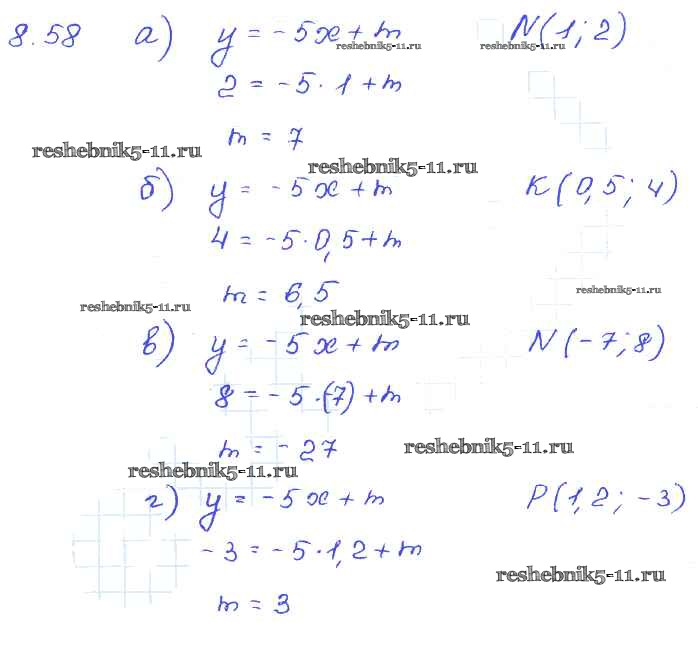 8.58 а) y = -5x + m N(1; 2)
reshebnik5-11.ru reshebnik5-11.ru
2 = -5 · 1 + m
m = 7
reshebnik5-11.ru
reshebnik5-11.ru
б) y = -5x + m K(0,5; 4)
4 = -5 · 0,5 + m
m = 6,5
reshebnik5-11.ru
reshebnik5-11.ru
reshebnik5-11.ru
в) y = -5x + m N(-7; 8)
8 = -5 · (-7) + m
m = -27
reshebnik5-11.ru
reshebnik5-11.ru
г) y = -5x + m P(1,2; -3)
-3 = -5 · 1,2 + m
reshebnik5-11.ru
m = 3